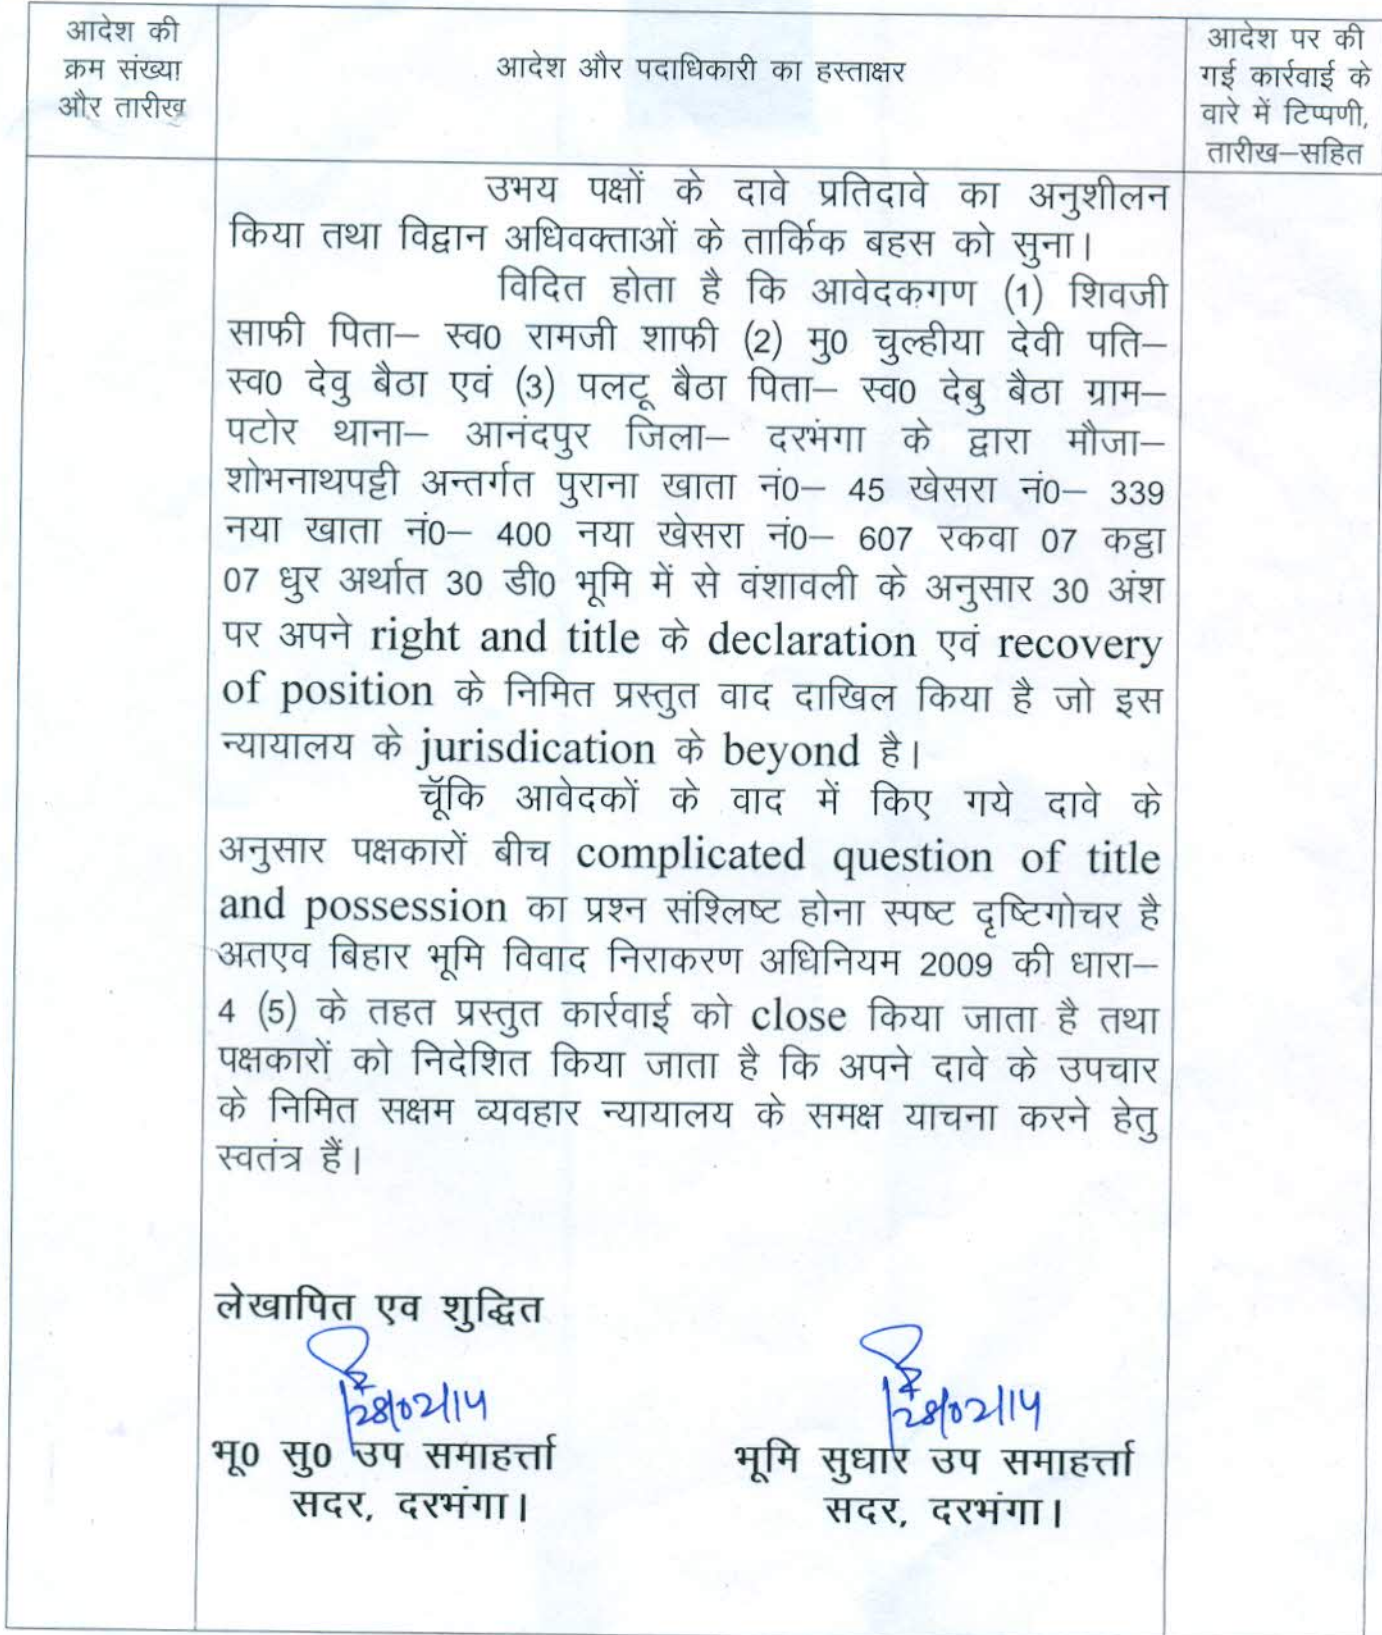 आदेश की
क्रम संख्या
और तारीख
आदेश और पदाधिकारी का हस्ताक्षर
आदेश पर की
गई कार्रवाई के
वारे में टिप्पणी,
तारीख–सहित
उभय पक्षों के दावे प्रतिदावे का अनुशीलन
किया तथा विद्वान अधिवक्ताओं के तार्किक बहस को सुना।
विदित होता है कि आवेदकगण (1) शिवजी
साफी पिता– स्व0 रामजी शाफी (2) मु0 चुल्हीया देवी पति–
स्व0 देवु बैठा एवं (3) पलटू बैठा पिता– स्व0 देबु बैठा ग्राम–
पटोर थाना– आनंदपुर जिला– दरभंगा के द्वारा मौजा–
शोभनाथपट्टी अन्तर्गत पुराना खाता नं0– 45 खेसरा नं0– 339
नया खाता नं0– 400 नया खेसरा नं0– 607 रकवा 07 कट्ठा
07 धुर अर्थात 30 डी0 भूमि में से वंशावली के अनुसार 30 अंश
पर अपने right and title के declaration एवं recovery
of position के निमित प्रस्तुत वाद दाखिल किया है जो इस
न्यायालय के jurisdication के beyond है।
चूॅकि आवेदकों के वाद में किए गये दावे के
अनुसार पक्षकारों बीच complicated question of title
and possession का प्रश्न संश्लिष्ट होना स्पष्ट दृष्टिगोचर है
अतएव बिहार भूमि विवाद निराकरण अधिनियम 2009 की धारा–
4 (5) के तहत प्रस्तुत कार्रवाई को close किया जाता है तथा
पक्षकारों को निदेशित किया जाता है कि अपने दावे के उपचार
के निमित सक्षम व्यवहार न्यायालय के समक्ष याचना करने हेतु
स्वतंत्र हैं।
लेखापित एव शुद्धित
28/02/14
28/02/14
भू0 सु0 उप समाहर्त्ता
भूमि सुधार उप समाहर्त्ता
सदर, दरभंगा।
सदर, दरभंगा।